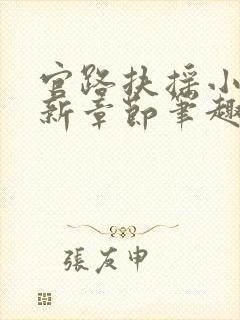 官路扶摇小
新章节笔趣
張友申